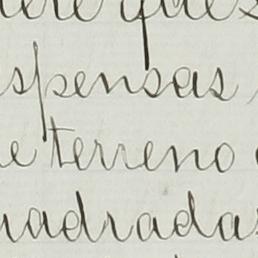 que
spensas
e terreno
uadradas